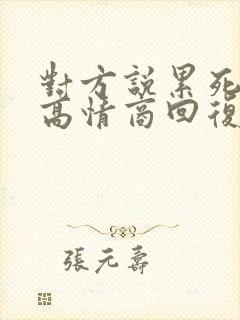 對方說累死
高情商回復
張元壽